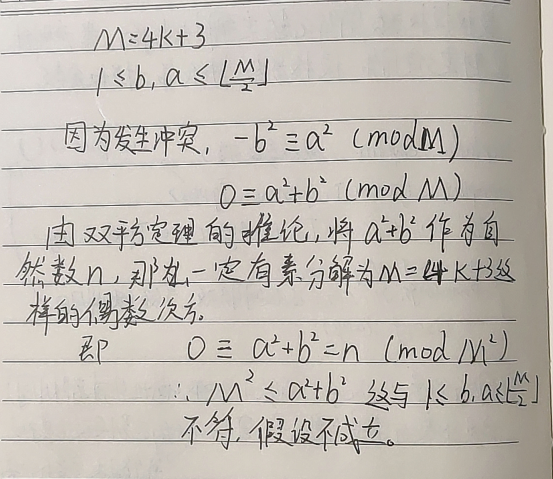 M=4k+3
1≤b,a≤⌊M/2⌋
因为发生冲突, -b²≡a² (mod M)
0≡a²+b² (mod M)
由双平方定理的推论,将a²+b²作为自
然数n,那么一定有素分解为M=4k+3这
样的偶数次方。
即 0≡a²+b²=n (mod M²)
∴M²≤a²+b² 这与1≤b,a≤⌊M/2⌋
不符,假设不成立。